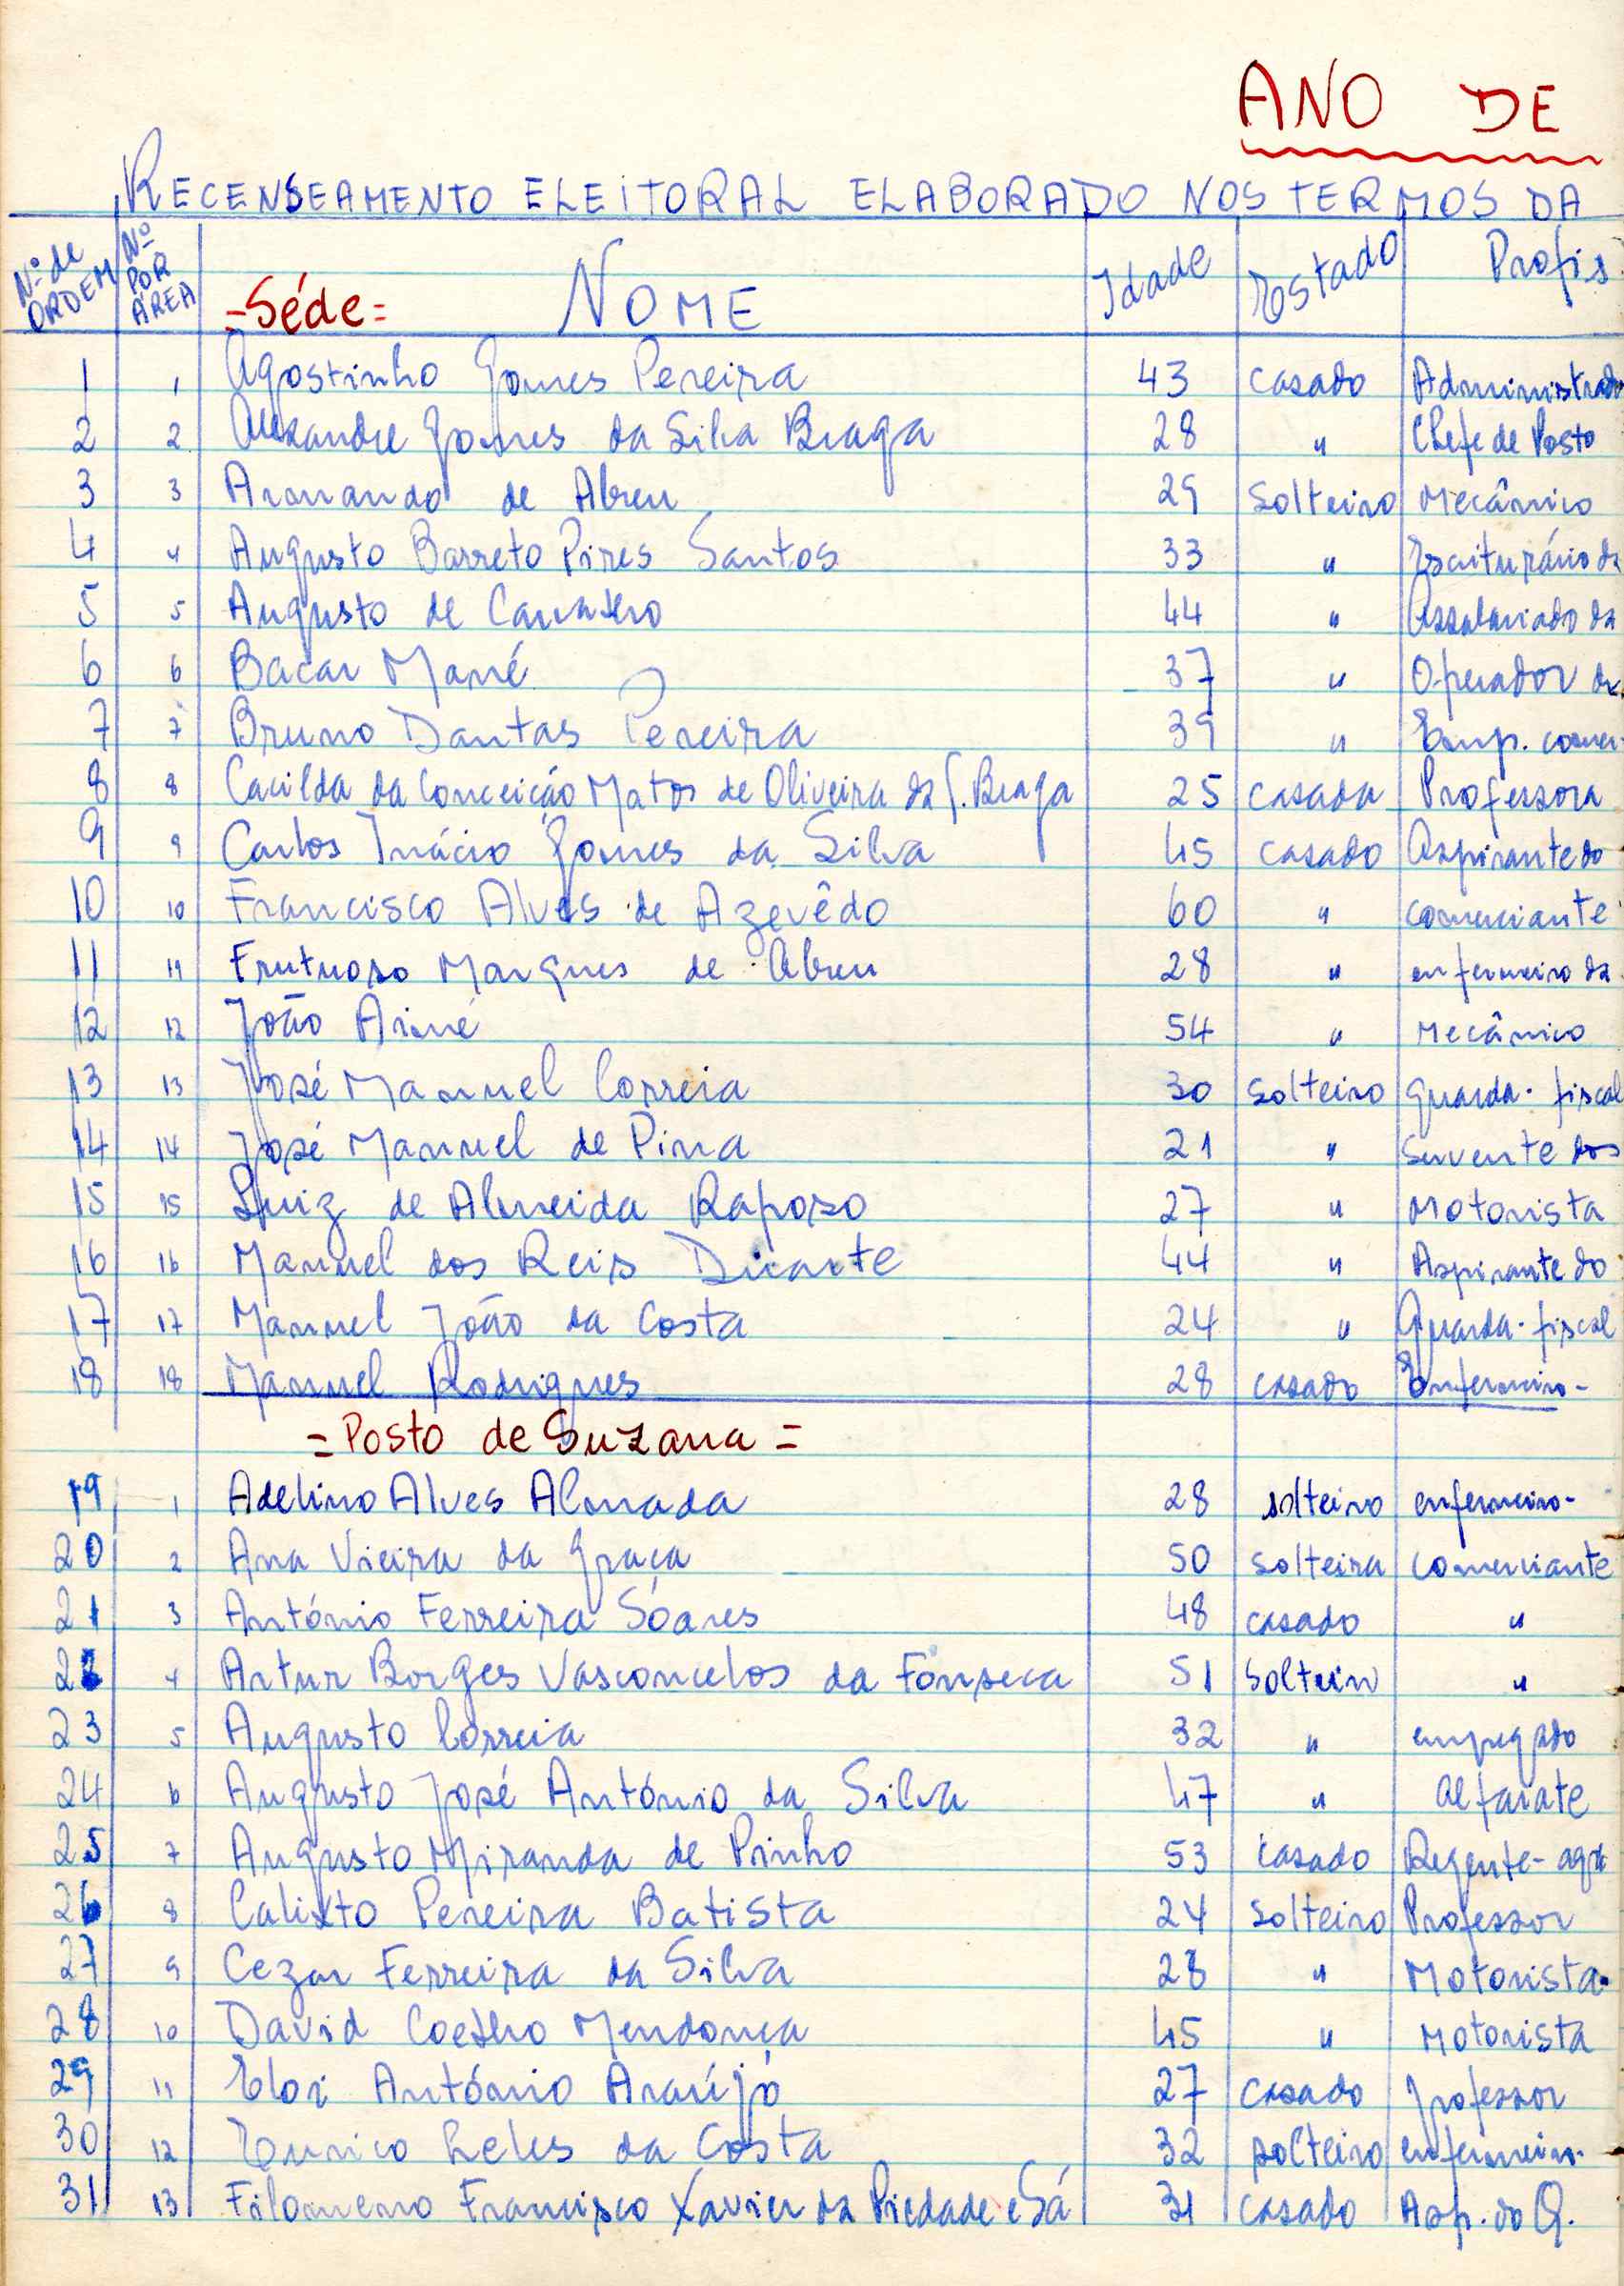 ANO DE
RECENSEAMENTO ELEITORAL ELABORADO NOS TERMOS DA
Nº de ORDEM Nº POR ÁREA =Séde= NOME Idade Estado Profis
1 1 Agostinho Gomes Pereira 43 casado Administrado
2 2 Alexandre Gomes da Silva Braga 28 " Chefe de Posto
3 3 Armando de Abreu 29 Solteiro Mecânico
4 4 Augusto Barreto Pires Santos 33 " Escriturário da
5 5 Augusto de Carvalho 44 " Assalariado da
6 6 Bacar Mané 37 " Operador da
7 7 Bruno Dantas Pereira 39 " Emp. comer
8 8 Cacilda da Conceição Matos de Oliveira da S. Braga 25 casada Professora
9 9 Carlos Inácio Gomes da Silva 45 casado Aspirante do
10 10 Francisco Alves de Azevêdo 60 " comerciante
11 11 Frutuoso Marques de Abreu 28 " enfermeiro da
12 12 João Aimé 54 " Mecânico
13 13 José Manuel Correia 30 solteiro guarda-fiscal
14 14 José Manuel de Pina 21 " Servente dos
15 15 Luiz de Almeida Raposo 27 " Motorista
16 16 Manuel dos Reis Duarte 44 " Aspirante do
17 17 Manuel João da Costa 24 " Guarda-fiscal
18 18 Manuel Rodrigues 28 casado Enfermeiro-
=Posto de Suzana=
19 1 Adelino Alves Almada 28 solteiro enfermeiro-
20 2 Ana Vieira da Graça 50 solteira comerciante
21 3 António Ferreira Sóares 48 casado "
22 4 Artur Borges Vasconcelos da Fonseca 51 Solteiro "
23 5 Augusto Correia 32 " empregado
24 6 Augusto José António da Silva 47 " alfaiate
25 7 Augusto Miranda de Pinho 53 casado Regente-agrí
26 8 Calixto Pereira Batista 24 solteiro Professor
27 9 Cezar Ferreira da Silva 28 " Motorista
28 10 David Coelho Mendonça 45 " Motorista
29 11 Eloi António Araújo 27 casado professor
30 12 Eurico Teles da Costa 32 solteiro enfermeiro-
31 13 Filomeno Francisco Xavier da Piedade e Sá 31 casado Asp. do Q.